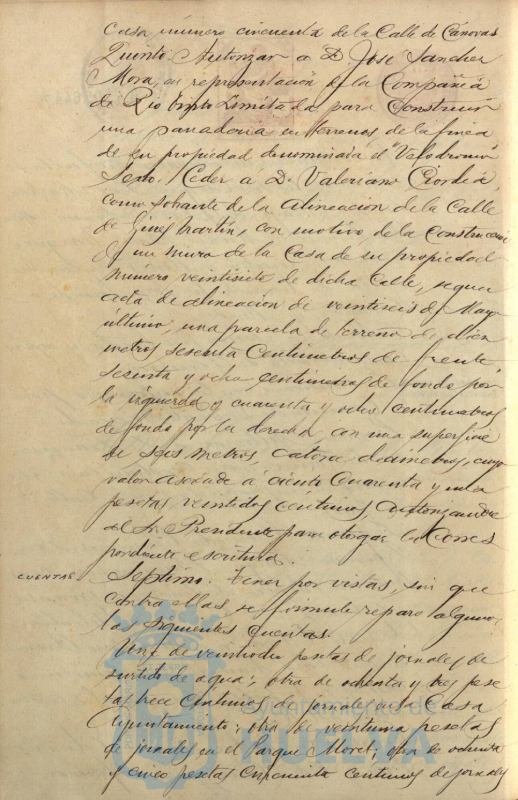 casa número cincuenta de la Calle de Cánovas
Quinto. Autorizar a D. José Sanchez
Mora, en representación de la Compañía
de Rio Tinto Limitada para construir
una panadería en terrenos de la finca
de su propiedad denominada el "Velodromo"
Sexto. Ceder á D. Valeriano
como sobrante de la alineación de la Calle
de Ginés Martín, con motivo de la Construcción
de un muro de la Casa de su propiedad
número veintisiete de dicha Calle, segun
acta de alineación de veintiseis de Mayo
último, una parcela de terreno de diez
metros sesenta centimetros de frente
sesenta y ocho centimetros de fondo por
la izquierda y cuarenta y ocho centimetros
de fondo por la derecha, con una superficie
de seis metros, catorce decímetros, cuyo
valor asciende á ciento cuarenta y una
pesetas veintidos céntimos autorizandose
al Sr. Presidente para otorgar la corres
pondiente escritura.
CUENTAS
Septimo. Tener por vistas, sin que
contra ellas, se formule reparo alguno
las siguientes cuentas.
Una de veintidos pesetas de jornales de
surtido de agua; otra de ochenta y tres pese
tas trece centimos de jornales en la Casa
Ayuntamiento; otra de veintiuna pesetas
de jornales en el Parque Moret; otra de ochenta
y cinco pesetas cincuenta centimos de jornales
Ayuntamiento de
HUELVA